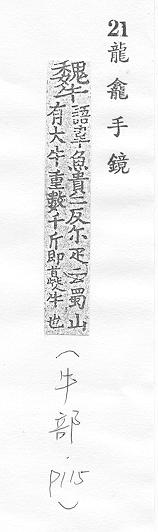 21龍龕手鏡
犩語韋魚貴二反尔疋云蜀山
有大牛重數千斤即犪牛也
(牛部．P115)